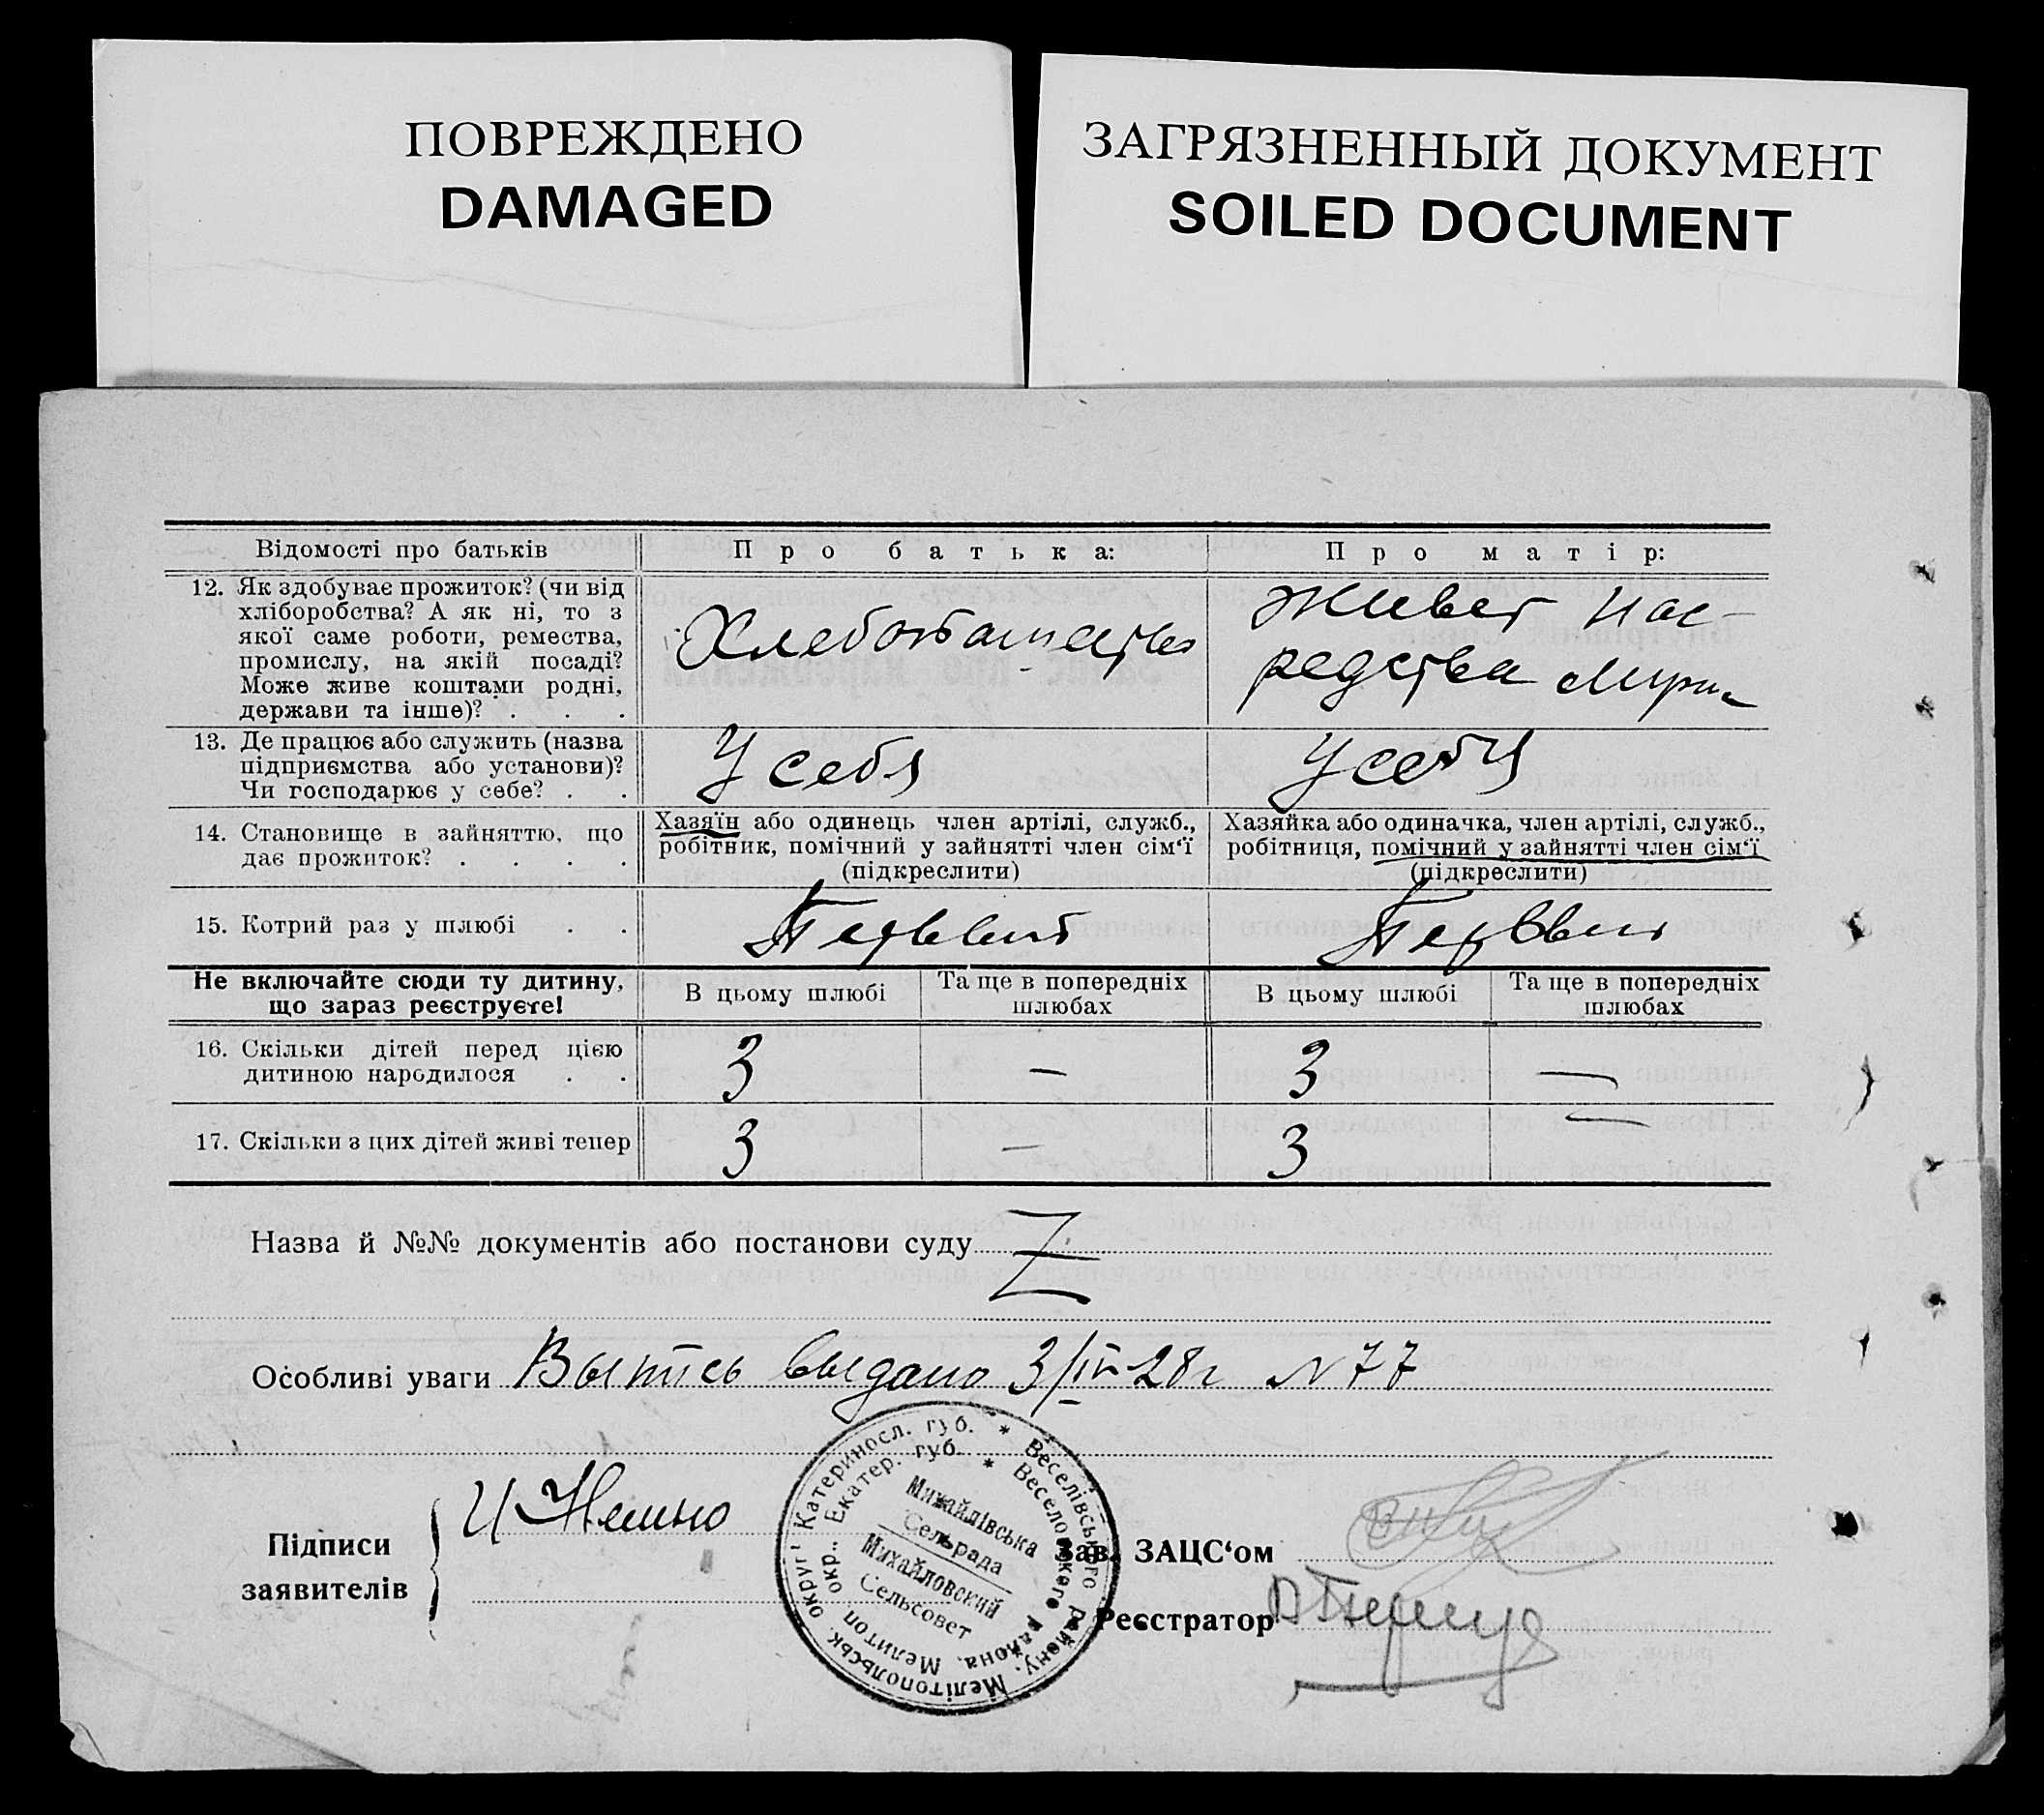 ПОВРЕЖДЕНО
DAMAGED
ЗАГРЯЗНЕННЫЙ ДОКУМЕНТ
SOILED DOCUMENT
Відомості про батьків
Про батька:
Про матір:
12. Як здобуває прожиток? (чи від
хліборобства? А як ні, то з
якої саме роботи, ремества,
промислу, на якій посаді?
Може живе коштами родні,
держави та інше)? . . .
Живет нас-
редства
13. Де працює або служить (назва
підприємства або установи)?
Чи господарює у себе? . .
У себя
У себя
14. Становище в зайняттю, що
дає прожиток? . . . .
Хазяїн або одинець член артілі, служб.,
робітник, помічний у зайнятті член сім‘ї
(підкреслити)
Хазяйка або одиначка, член артілі, служб.,
робітниця, помічний у зайнятті член сім‘ї
(підкреслити)
15. Котрий раз у шлюбі . .
Не включайте сюди ту дитину,
що зараз реєструєте!
В цьому шлюбі
Та ще в попередніх
шлюбах
В цьому шлюбі
Та ще в попередніх
шлюбах
16. Скільки дітей перед цією
дитиною народилося . .
3
—
3
—
17. Скільки з цих дітей живі тепер
3
—
3
—
Назва й №№ документів або постанови суду
Z
Особливі уваги Выпись выдано 3/IV-28г N 77
Підписи
заявителів
Катериносл. губ. * Веселівського району, Мелітопольськ. округ
Екатер. губ. * Веселовского района, Мелитоп. окр.,
Михайлівська
Сельрада
Михайловский
Сельсовет
Зав. ЗАЦС‘ом
Реєстратор